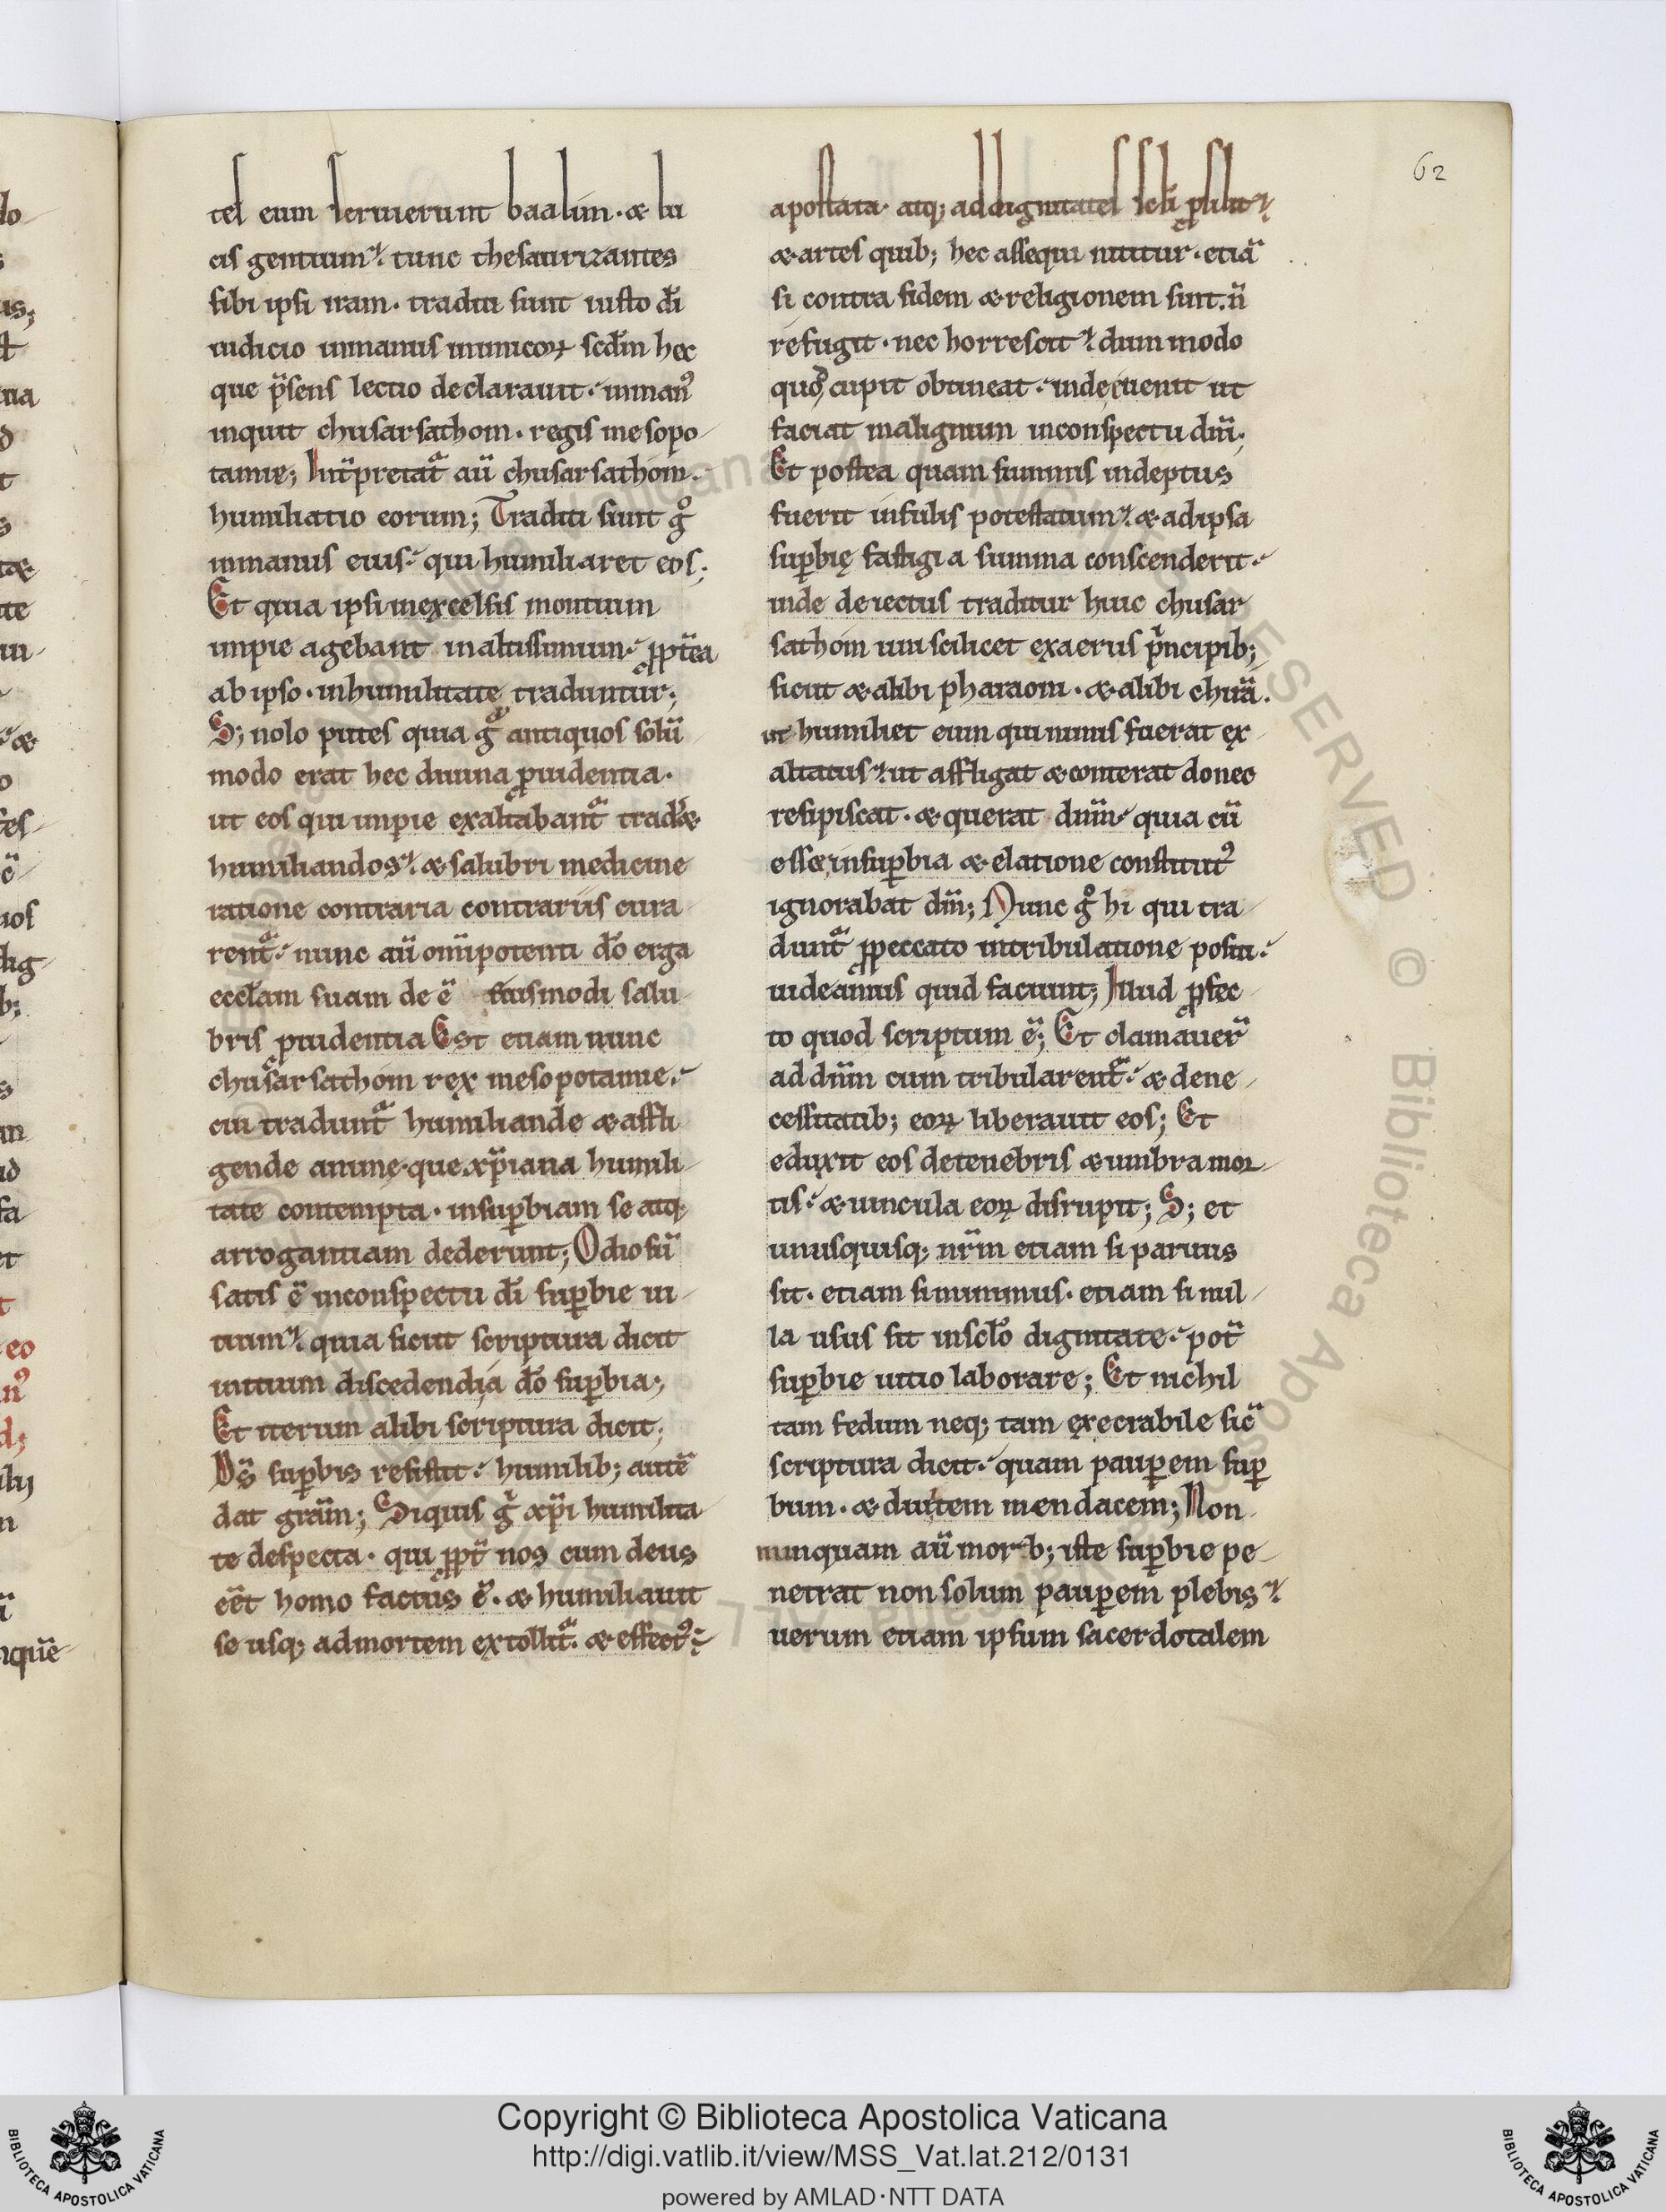 tes eum seruierunt baalim· & lu
cis gentium; tunc thesaurizantes
sibi ipsi iram· traditi sunt iusto dī
iudicio inmanus inimicoꝝ scdm hec
que p̄sens lectio declarauit· inmanꝰ
inquit chusarsathom· regis mesopo-
tamie; Int̄pretat᷑ aū chusarsathom·
humiliatio eorum; Traditi sunt gͦ
inmanus eius· qui humiliaret eos;
Et quia ipsi inexcelsis montium
impie agebant inaltissimum· ꝓpt̄ea
ab ipso· inhumilitate traduntur;
S; nolo putes quia gͦ antiquos solū
modo erat hec diuina ꝓuidentia·
ut eos qui impie exaltabant᷑ trad&
humiliandos· & salubri medicine
ratione contraria contrariis cura-
rent᷑· nunc aū om̄ipotenti dō erga
eccl̄am suam de ē eiusmodi salu-
bris ꝓuidentia Est etiam nunc
chusarsathom rex mesopotamie·
cui tradunt᷑ humiliande & affli-
gende anime· que xp̄iana humili-
tate contempta· insuꝑbiam se atq;
arrogantiam dederunt; Odiosū
satis ē inconspectu dī suꝑbie ui-
tium· quia sicut scriptura dicit
initium discedendi a dō suꝑbia;
Et iterum alibi scriptura dicit;
Ds̄ suꝑbis resistit· humilib; autē
dat grām; Siquis gͦ xp̄i humilita
te despecta· qui ꝓpt̄ nos cum deus
eēt homo factus ē· & humiliauit
se usq; admortem extollit᷑· & effectꝰ
apostata· atq; addignitates scl̄i ꝓsilit
& artes quib; hec assequi nititur· etiā
si contra fidem & religionem sint· n̄
refugit· nec horrescit· dum modo
quoꝰ cupit obtineat· inde euenit ut
faciat malignum inconspectu dn̄i·
Et postea quam summis indeptus
fuerit infulis potestatum· & adipsa
suꝑbię fastigia summa conscenderit·
inde deiectus traditur huic chusar
sathom uni scilicet exaeriis pͥncipib;
sicut & alibi pharaoni· & alibi chusā·
ut humiliet eum qui nimis fuerat ex-
altatus· ut affligat & conterat donec
resipiscat· & querat dn̄m· quia cū
esset insuꝑbia & elatione constitutꝰ
ignorabat dn̄m; Nunc gͦ hi qui tra-
dunt᷑ ꝓpeccato intribulatione positi·
uideamus quid faciunt; Illud ꝓfec-
to quod scriptum ē; Et clamauer̄
ad dn̄m cum tribularent᷑· & dene-
cessitatib; eoꝝ liberauit eos; Et
eduxit eos detenebris & umbra mor-
tis· & uincula eoꝝ disrupit; S; et
unusquisq; nr̄m etiam si paruus
sit· etiam si minimus· etiam si nul-
la usus sit inscl̄o dignitate· pot̄
suꝑbie uitio laborare; Et nichil
tam fedum neq; tam execrabile sic̄
scriptura dicit· quam pauꝑem suꝑ
bum· & diuitem mendacem; Non
nunquam aū morb; iste suꝑbie pe-
netrat non solum pauꝑem plebis·
uerum etiam ipsum sacerdotalem
62
Copyright © Biblioteca Apostolica Vaticana
http://digi.vatlib.it/view/MSS_Vat.lat.212/0131
powered by AMLAD·NTT DATA
BIBLIOTECA APOSTOLICA VATICANA
BIBLIOTECA APOSTOLICA VATICANA